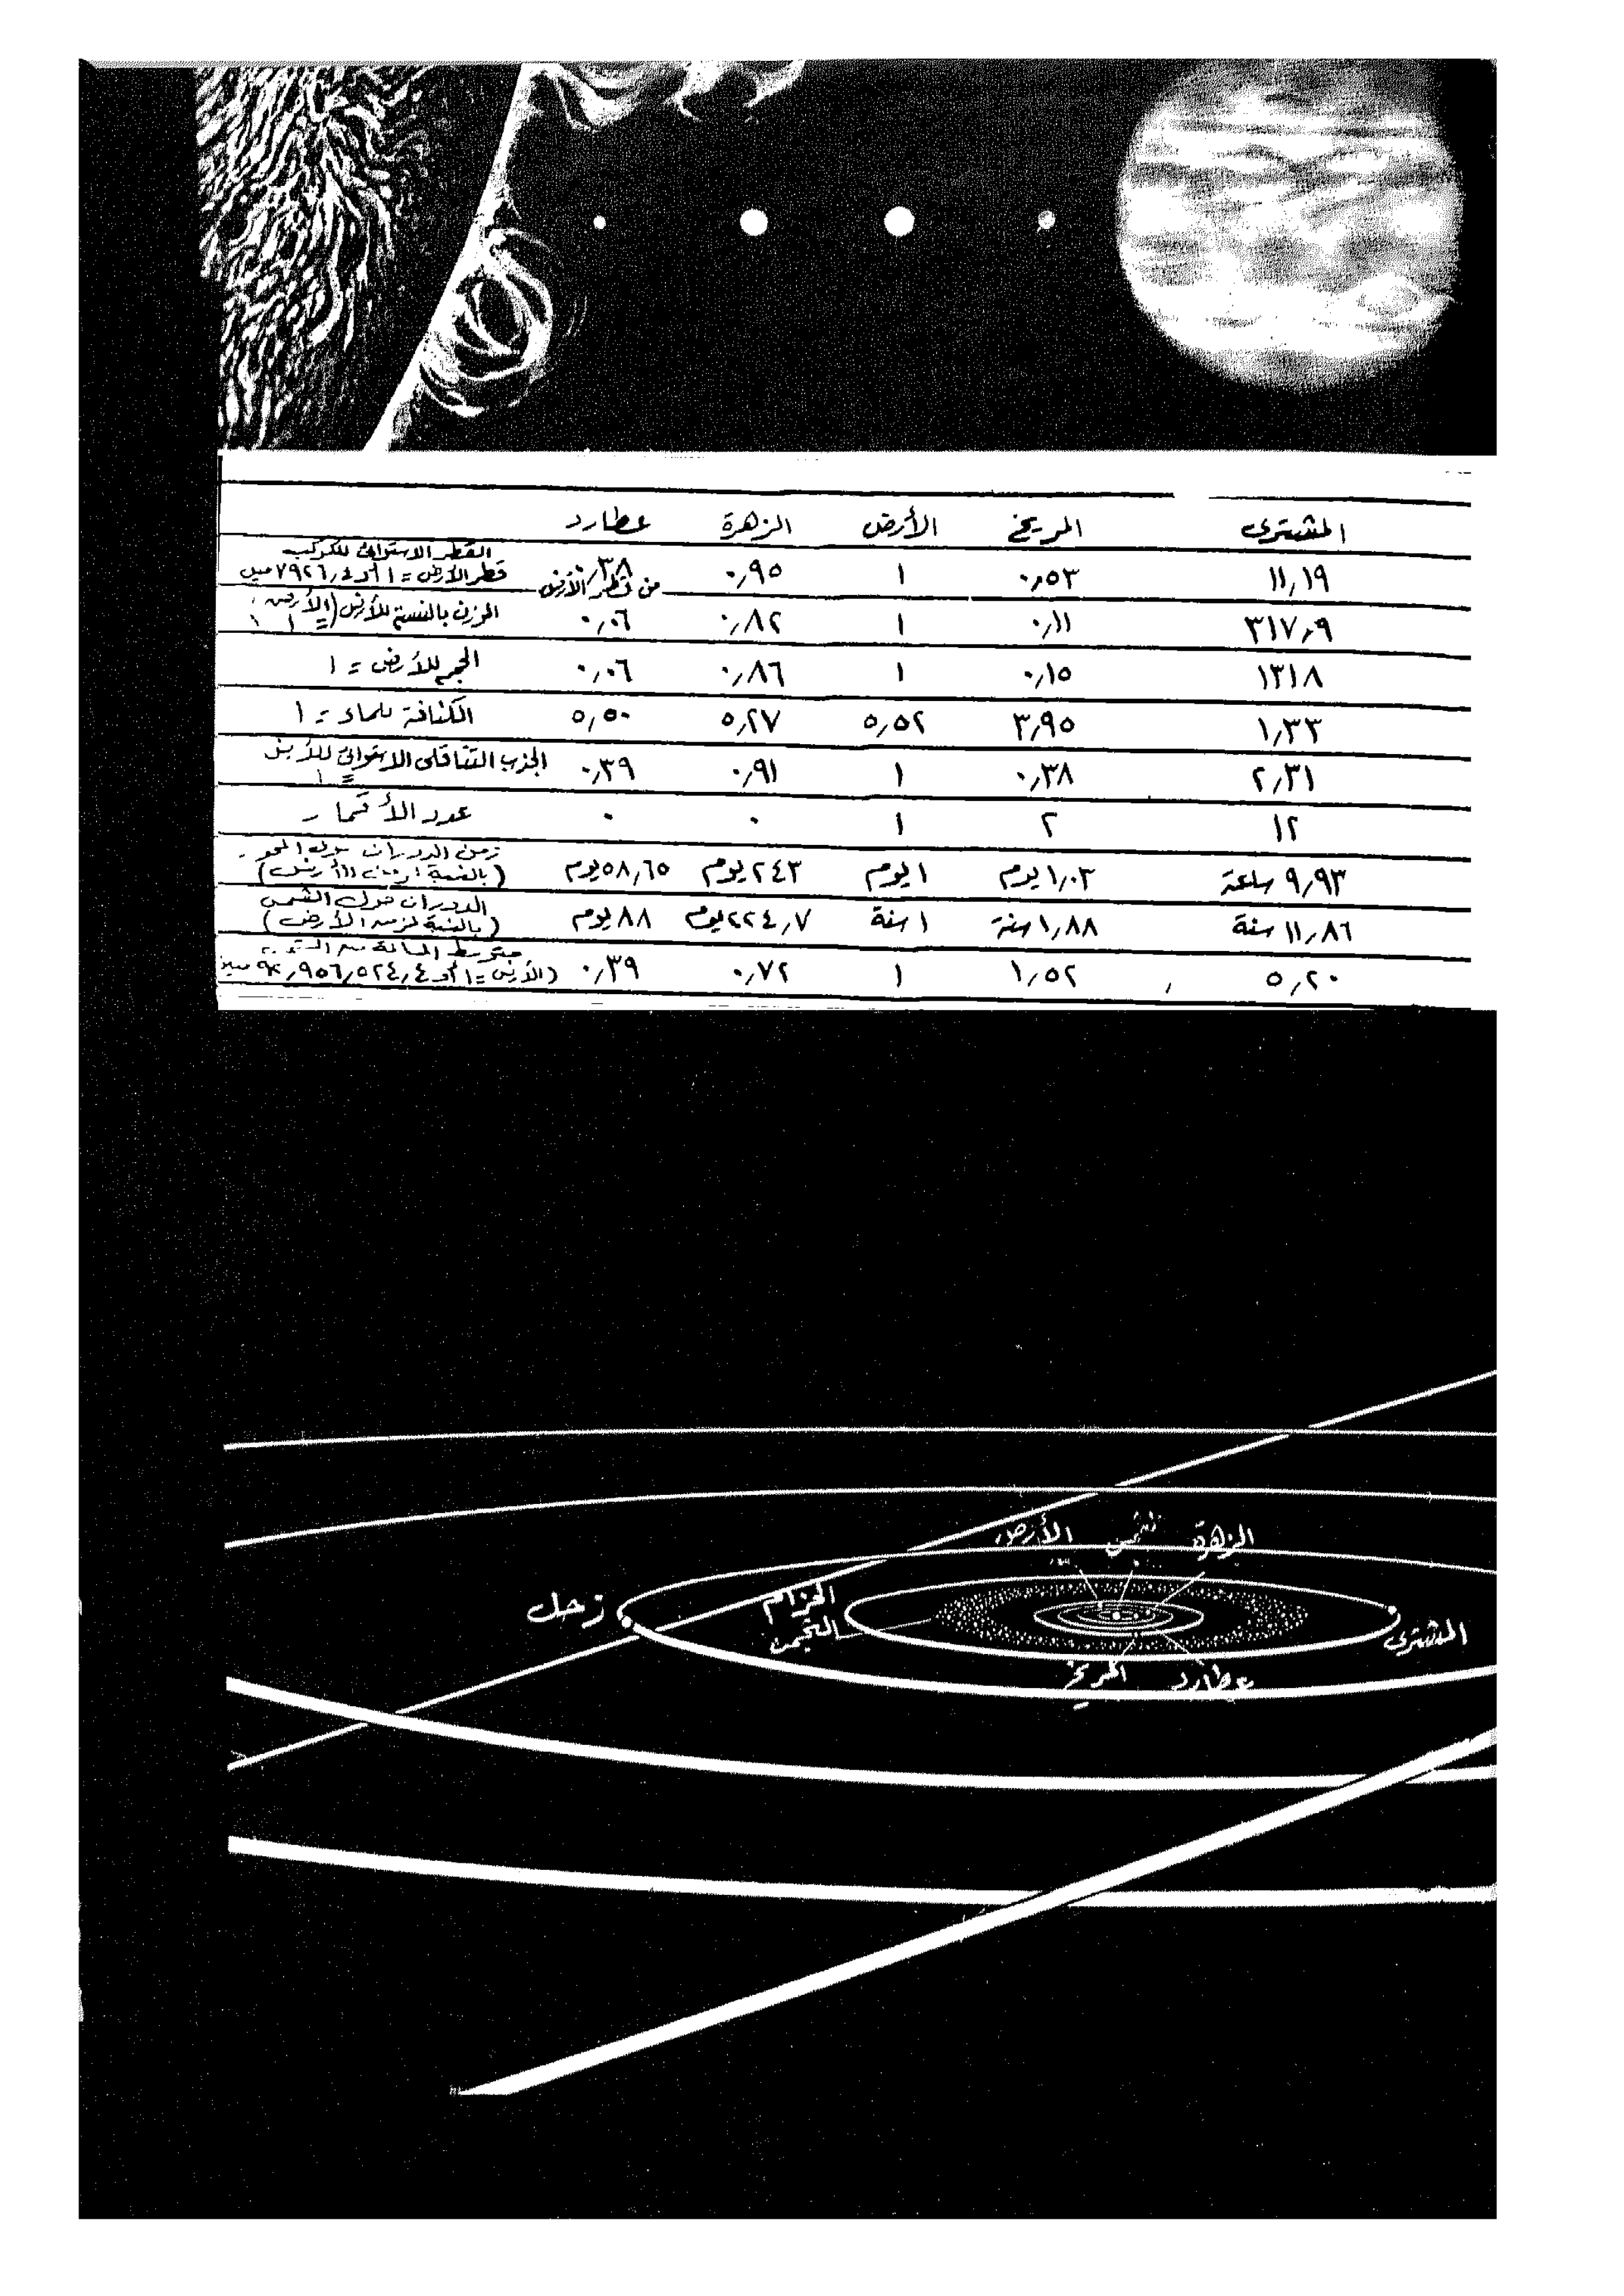 عطارد الزهرة الأرض المريخ المشترى
القطر الاستوائى للكوكب
قطر الأرض = ١ أو ٧٩٢٦٫٤ ميل ٠٫٣٨ ٠٫٩٥ ١ ٠٫٥٣ ١١٫١٩
من قطر الأرض
الوزن بالنسبة للأرض (الأرض = ١) ٠٫٠٦ ٠٫٨٢ ١ ٠٫١١ ٣١٧٫٩
الحجم للأرض = ١ ٠٫٠٦ ٠٫٨٦ ١ ٠٫١٥ ١٣١٨
الكثافة للماء = ١ ٥٫٥٠ ٥٫٢٧ ٥٫٥٢ ٣٫٩٥ ١٫٣٣
الجذب التثاقلى الاستوائى للأرض = ١ ٠٫٣٩ ٠٫٩١ ١ ٠٫٣٨ ٢٫٣١
عدد الأقمار ٠ ٠ ١ ٢ ١٢
زمن الدوران حول المحور
(بالنسبة لزمن الأرض) ٥٨٫٦٥ يوم ٢٤٣ يوم ١ يوم ١٫٠٣ يوم ٩٫٩٣ ساعة
الدوران حول الشمس
(بالنسبة لزمن الأرض) ٨٨ يوم ٢٢٤٫٧ يوم ١ سنة ١٫٨٨ سنة ١١٫٨٦ سنة
متوسط المسافة من الشمس
(الأرض = ١ أو ٩٢٫٩٥٦٫٥٢٤٫٤ ميل ٠٫٣٩ ٠٫٧٢ ١ ١٫٥٢ ٥٫٢٠
الزهرة
الشمس
الأرض
زحل
الحزام
المشترى
المريخ
عطارد